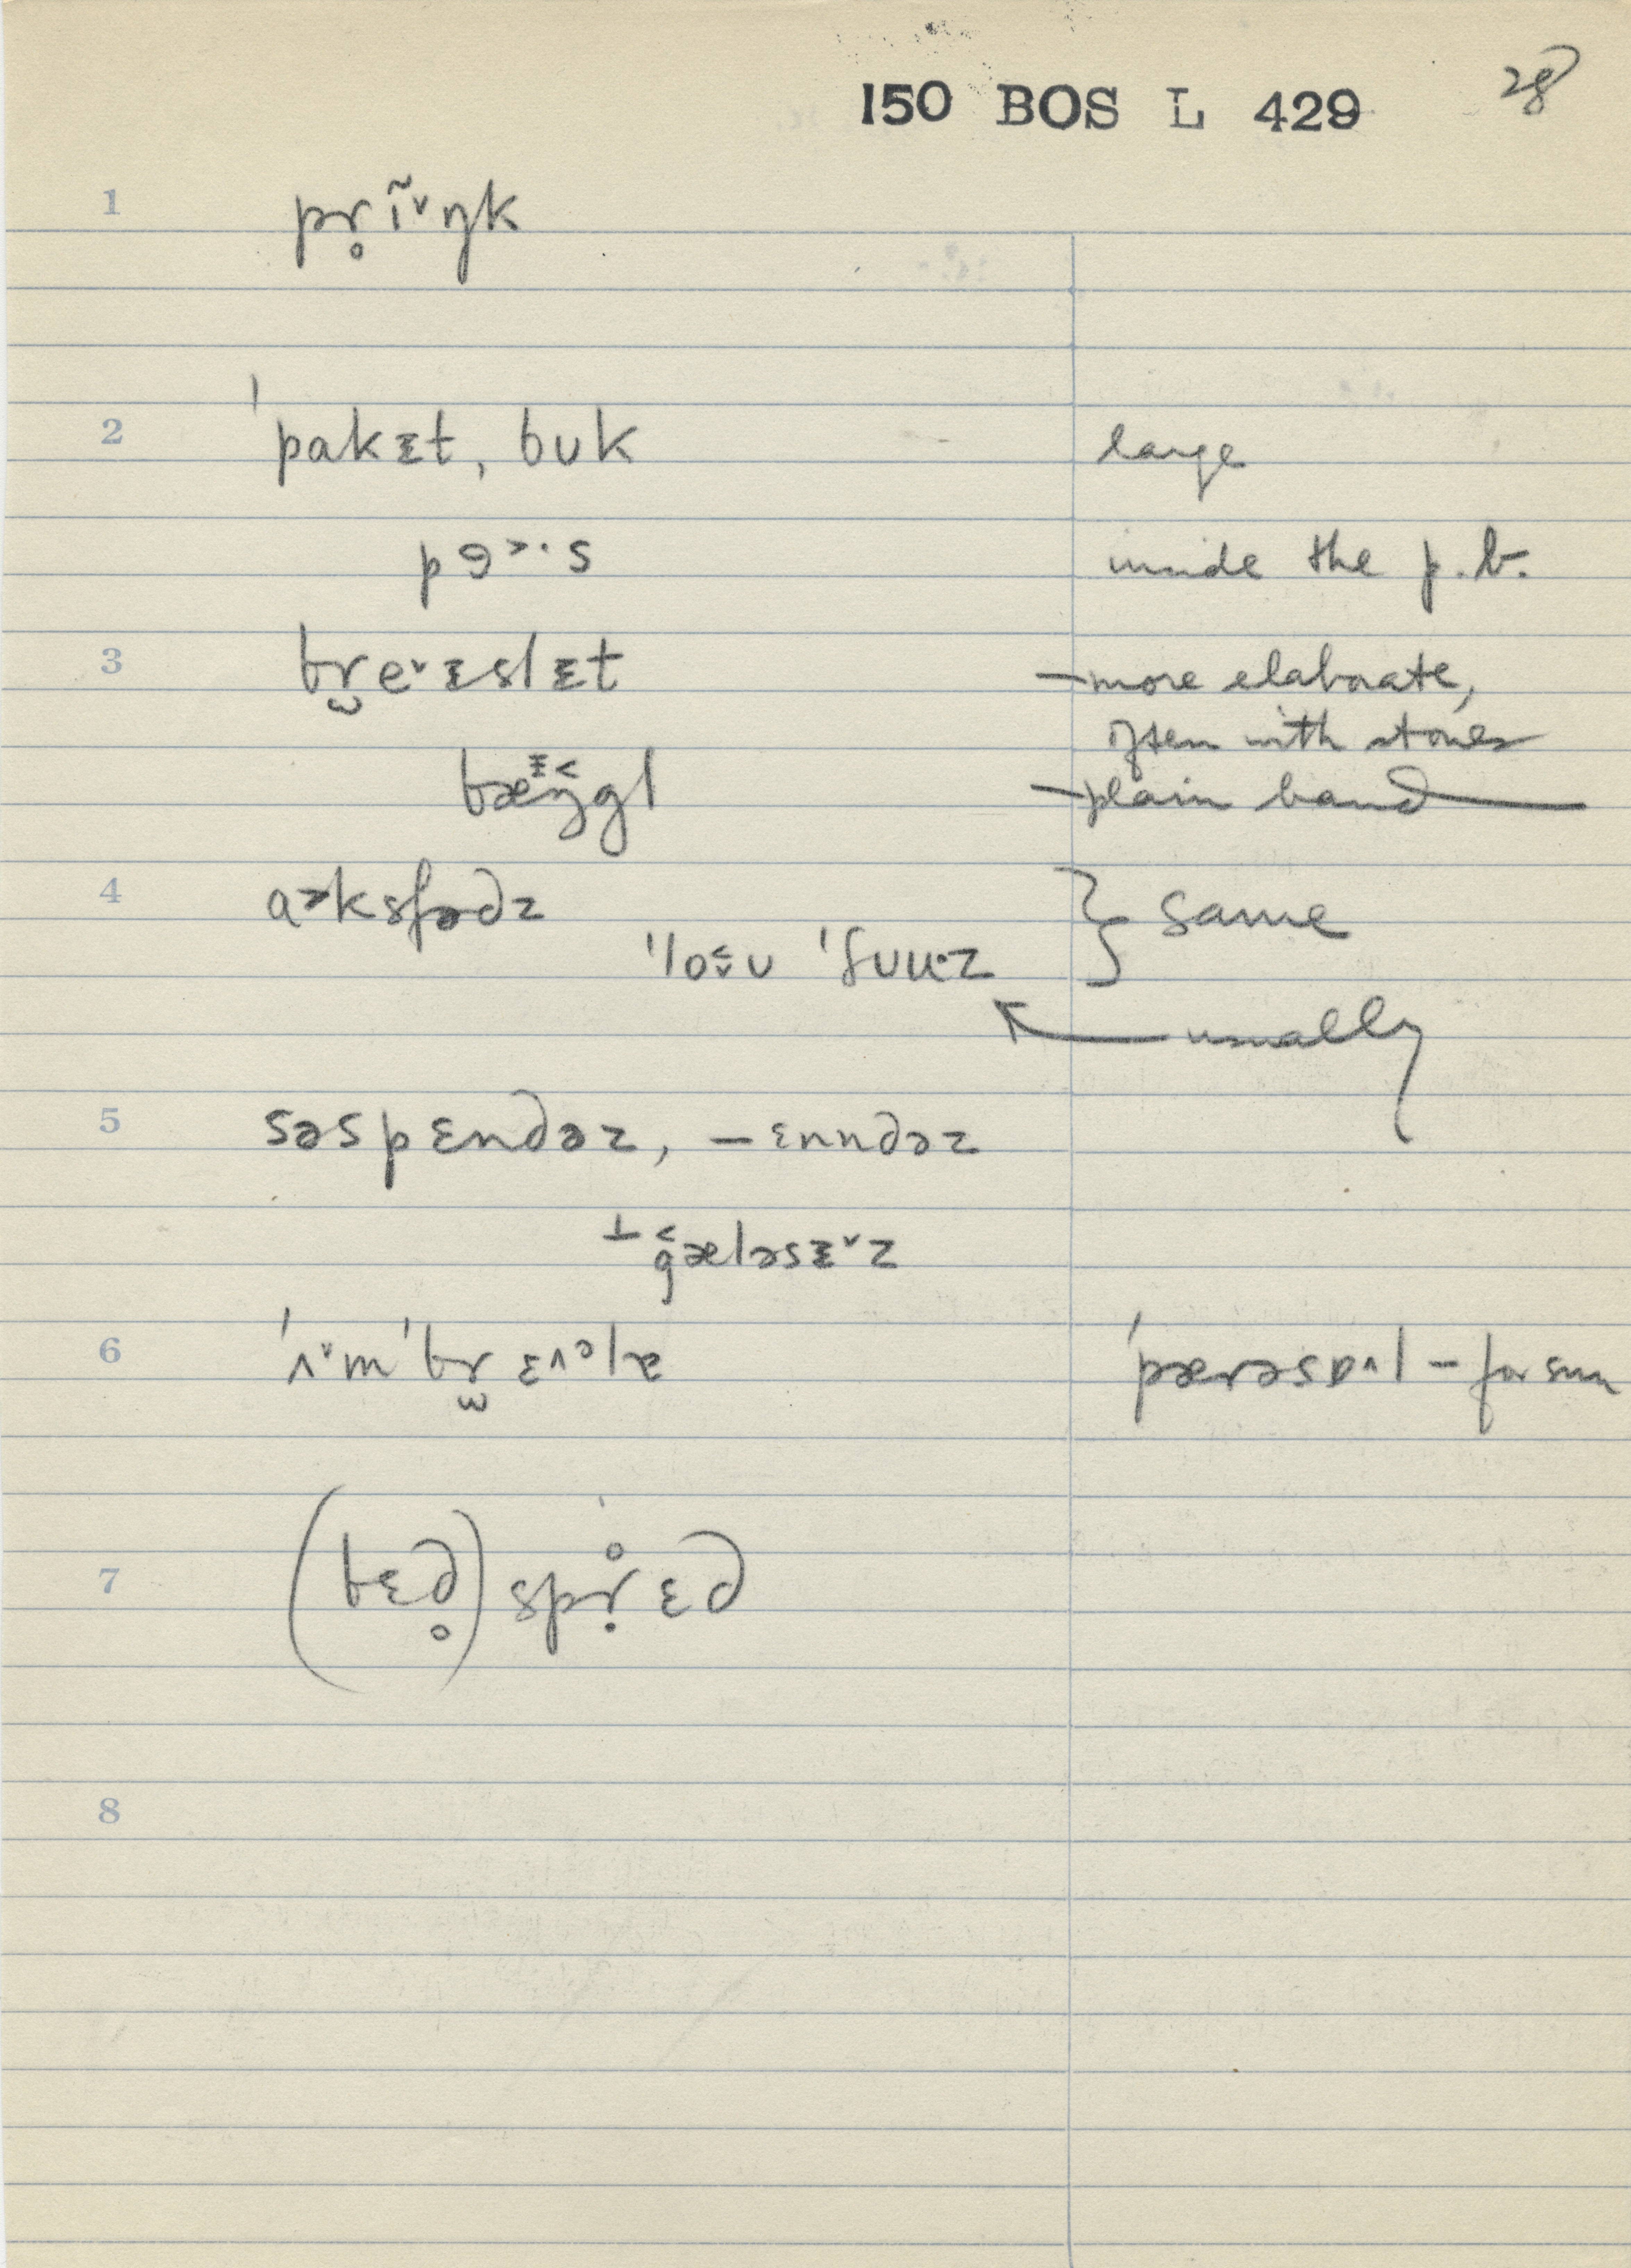 150 BOS L 429 28
1 pr̥ĩ˅ŋk
2 ˈpakᵻt, buk large
pɘ˃·s inside the p. b.
3 br̫e˅ᵻslᵻt —more elaborate,
often with stones
bæŋgl —plain band
4 a˃ksfədz } same
ˈloʊ ˈʃuuˑz
usually
5 səspɛndəz, –ɛnndəz
⊥ gæləsᵻ˅z
6 ˈʌ˅m ˈbr̫ɛ˄ᵊlə ˈpærəsɒ˄l – for sun
7 (bɛd̥) sprɛd
8